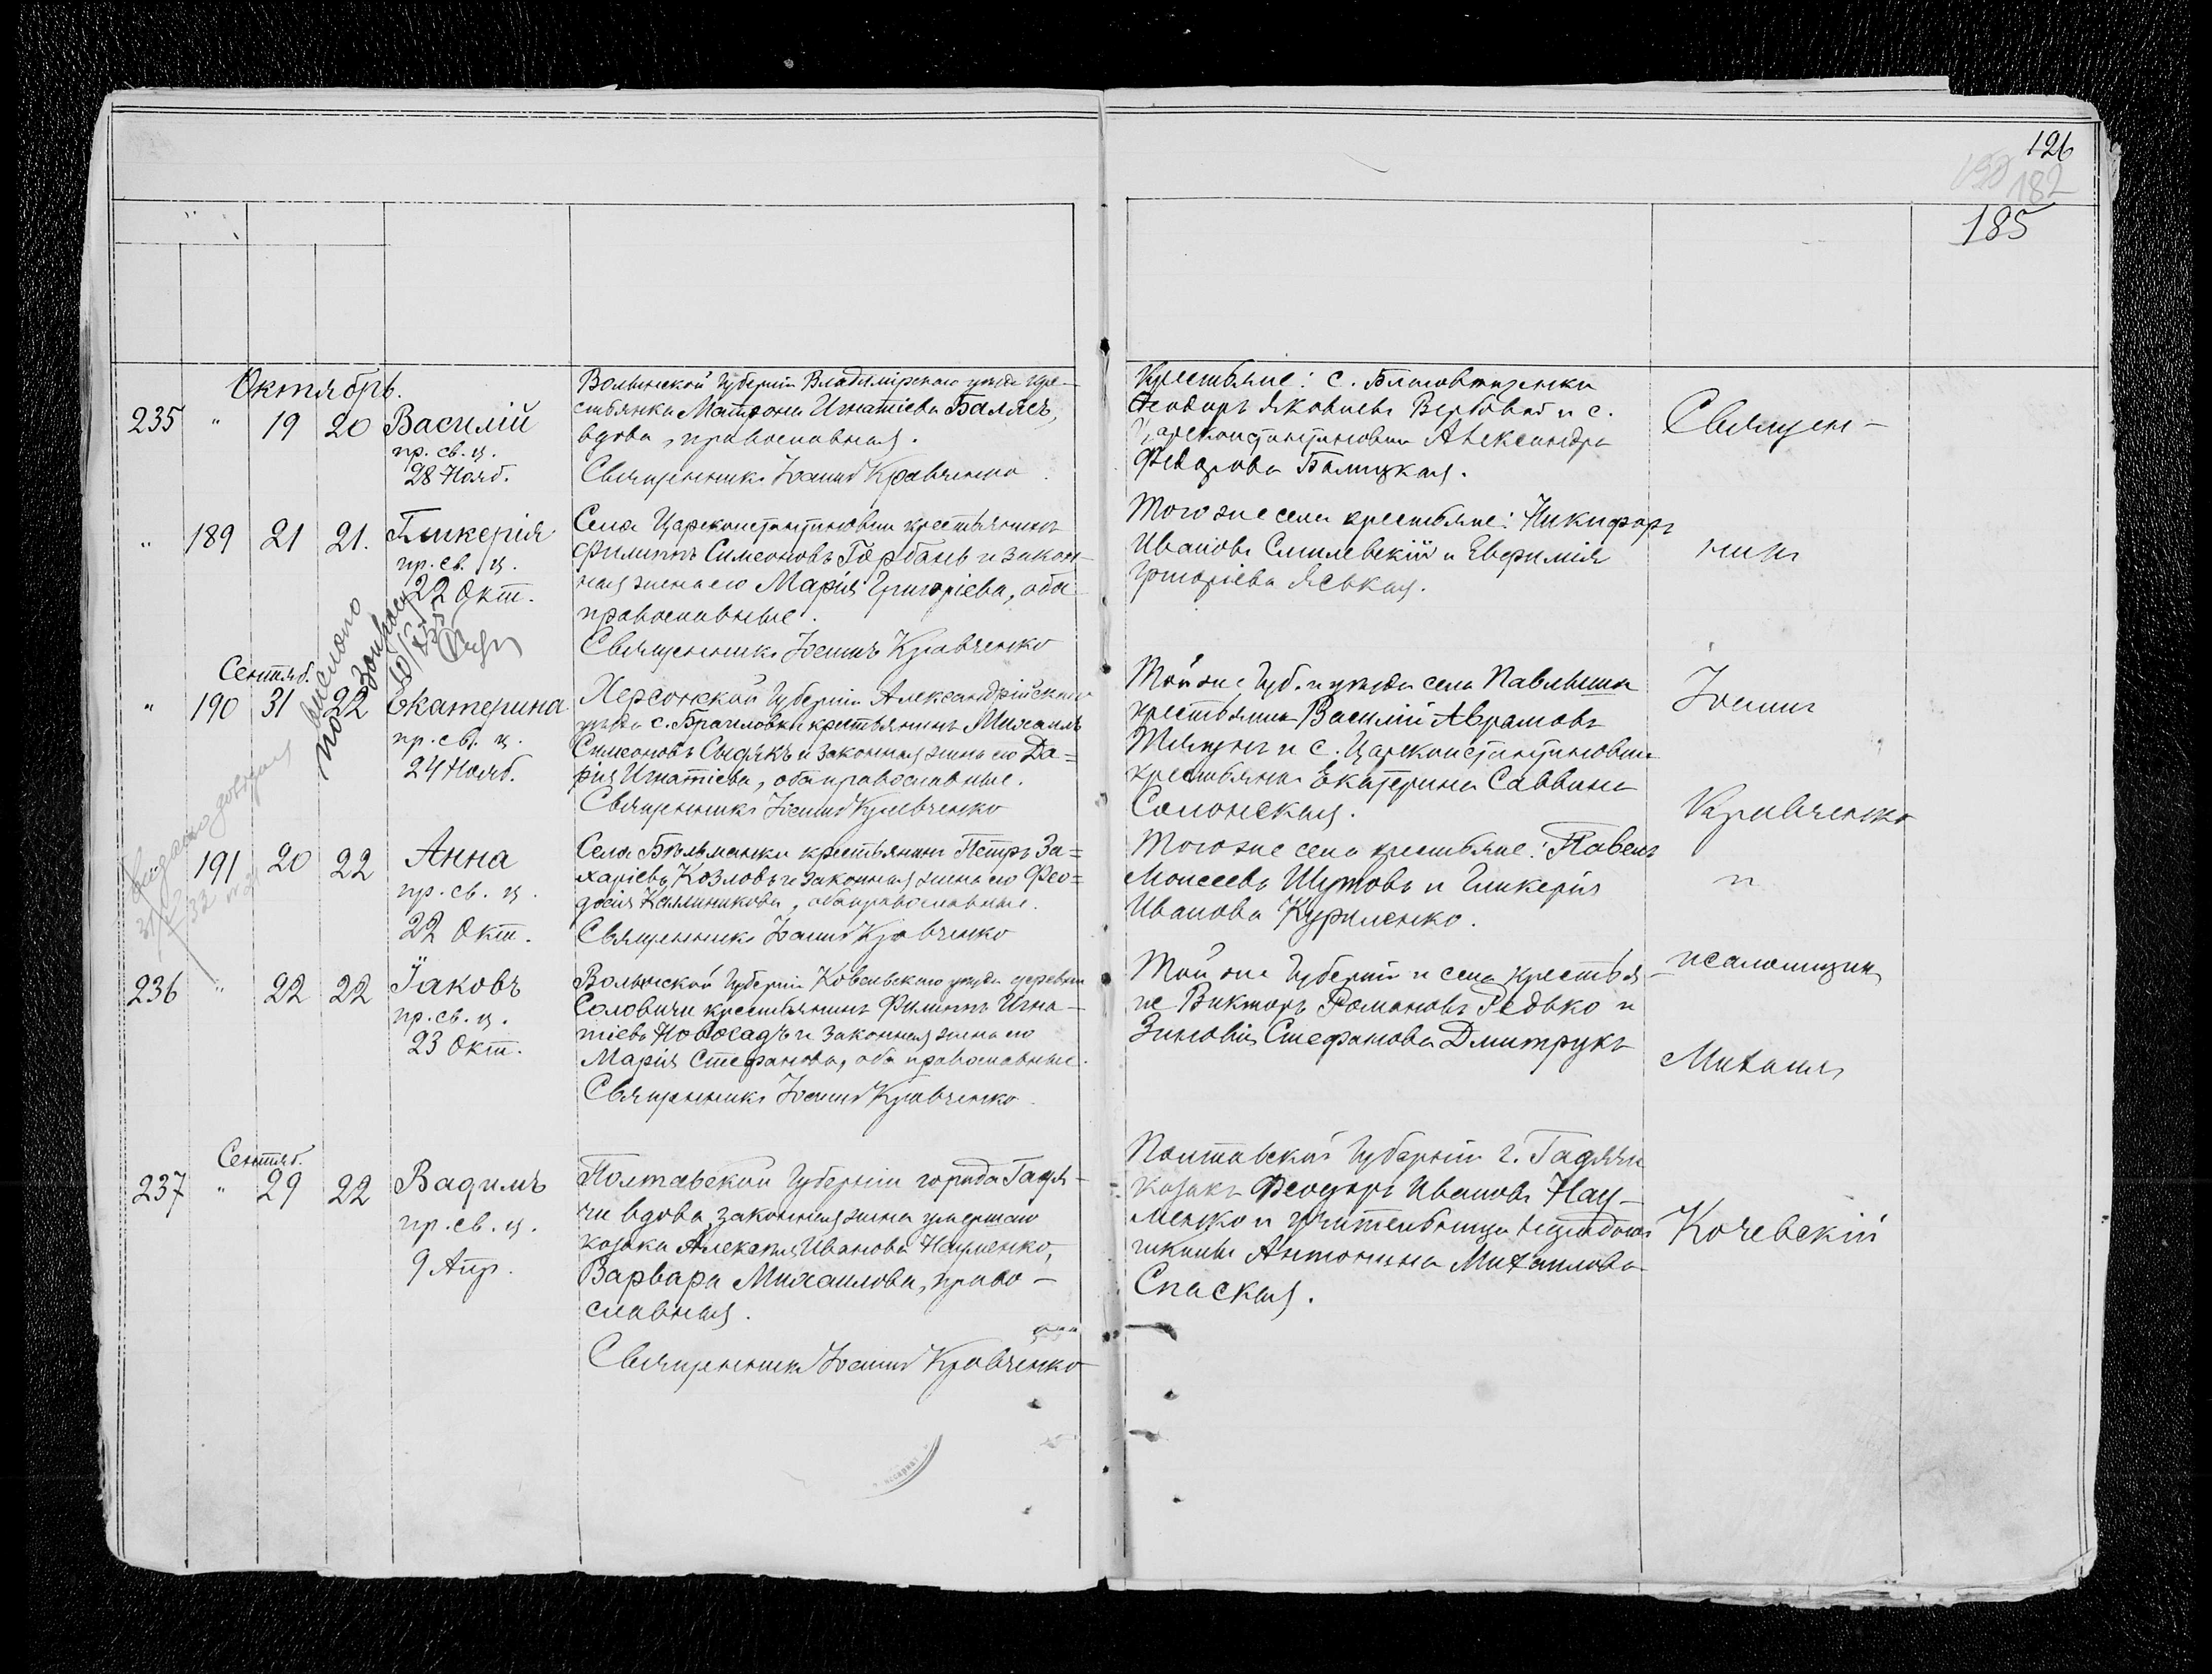 126
182
185
Октябрь.
235 " 19 20 Василій
пр. св. ц.
28 Нояб.
Волынской Губерніи Владимірскаго уѣзда кре-
стьянка Матрона Игнатіева Баляев,
вдова, православная.
Священникъ Іоаннъ Кравченко
Крестьяне: с. Благовѣщенки
Ѳеодоръ Яковлевъ Вербовой и с.
Цареконстантиновки Александра
Федорова Балицкая.
Священ-
" 189 21 21. Гликерія
пр. св. ц.
22 Окт.
Села Цареконстантиновки крестьянинъ
Филиппъ Симеоновъ Горбань и закон-
ная жена его Марія Григоріева, оба
православные.
Священникъ Іоаннъ Кравченко
Того же села крестьяне: Никифоръ
Ивановъ Смилевскій и Евфимія
Григоріева Яськая.
никъ
Сентяб.
" 190 31 22 Екатерина
пр. св. ц.
24 Нояб.
Херсонской Губерніи Александрійскаго
уѣзда с. Браиловки крестьянинъ Михаилъ
Симеоновъ и законная жена его Да=
рія Игнатіева, оба православные.
Священникъ Іоаннъ Кравченко
Той же Губ. и уѣзда села Павлыша
крестьянинъ Василій Аврамовъ
и с. Цареконстантиновки
крестьянка Екатерина Саввина
Солонская.
Іоаннъ
Кравченко
" 191 20 22 Анна
пр. св. ц.
22 Окт.
Села Бѣльманки крестьянинъ Петръ За=
харіевъ Козловъ и законная жена его Фео=
досія Каллиникова, оба православные.
Священникъ Іоаннъ Кравченко
Того же села крестьяне: Павелъ
Моисеевъ Шутовъ и Гликерія
Иванова Куриленко.
и
236 " 22 22 Іаковъ
пр. св. ц.
23 Окт.
Волынской Губерніи Ковельскаго уѣзда деревни
Соловичи крестьянинъ Филиппъ Игна-
тіевъ Новосадъ и законная жена его
Марія Стефанова, оба православные.
Священникъ Іоаннъ Кравченко
Той же Губерніи и села крестья-
не Викторъ Романовъ Редько и
Зиновія Стефанова Дмитрукъ
псаломщикъ
Михаилъ
Сентяб.
237 " 29 22 Вадимъ
пр. св. ц.
9 Апр.
Полтавской Губерніи города Гадя-
чи вдова, законная жена умершаго
козака Алексѣя Иванова Науменко,
Варвара Михаилова, право-
славная.
Священникъ Іоаннъ Кравченко
Полтавской Губерніи г. Гадяча
козакъ Феодоръ Ивановъ Нау-
менко и учительница
школы Антонина Михаилова
Спаская.
Кочевскій